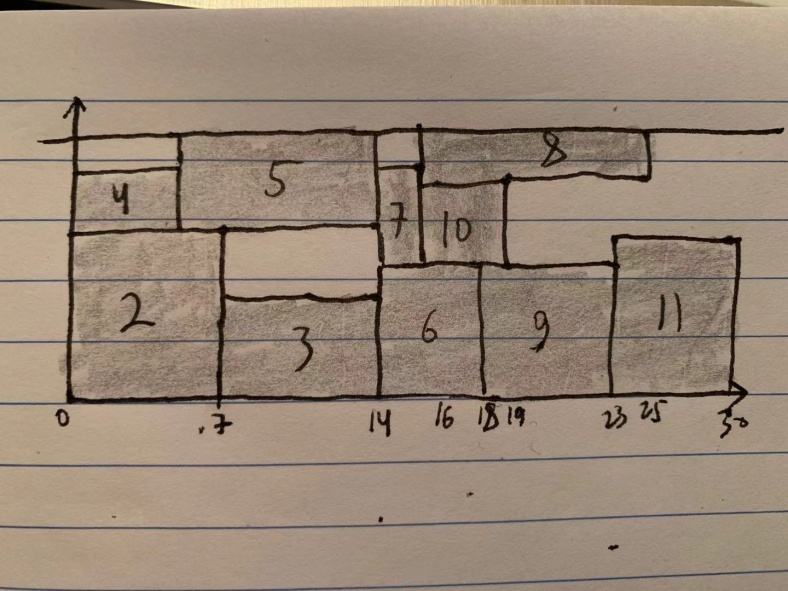 5 8
4 7 10
2 3 6 9 11
0 .7 14 16 18 19 23 25 30